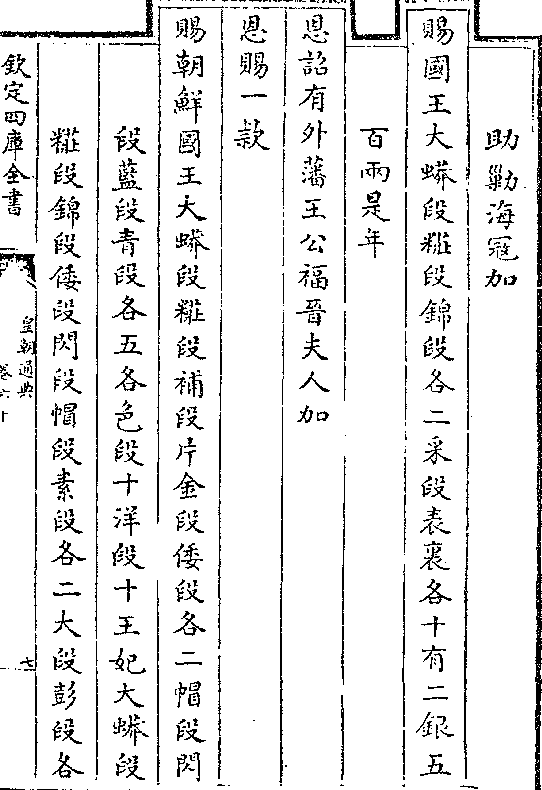 助勦海冦加
賜國王大蟒段糚段錦段各二采段表裏各十有二銀五
百兩是年
恩詔有外藩王公福晉夫人加
恩賜一款
賜朝鮮國王大蟒段糚段補段片金段倭段各二帽段閃
段藍段青段各五各色段十洋段十王妃大蟒段
糚段錦段倭段閃段帽段素段各二大段彭段各
欽定四庫全書
皇朝通典
卷六十
七